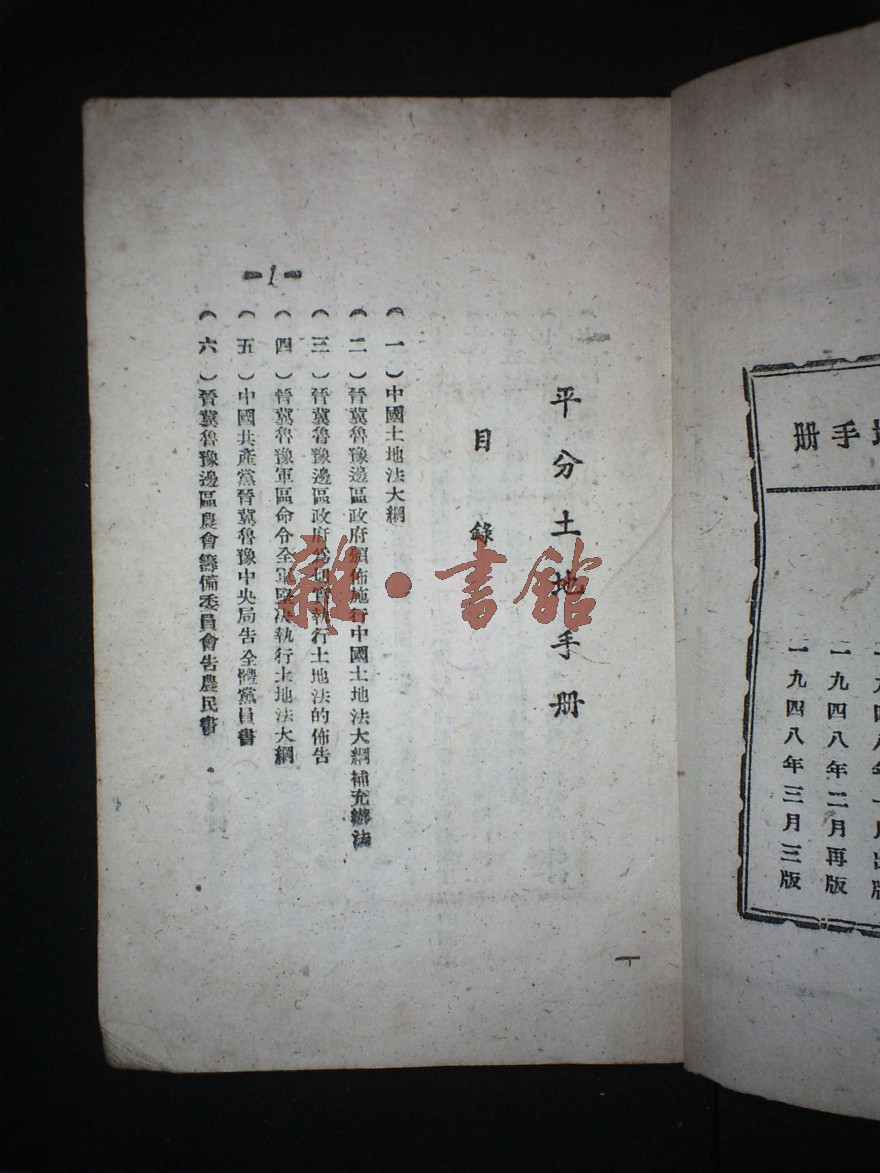 平分土地手册
目錄
(一)中國土地法大綱
(二)晉冀魯豫邊區政府頒佈施行中國土地法大綱補充辦法
(三)晉冀魯豫邊區政府爲切實執行土地法的佈告
(四)晉冀魯豫軍區命令全軍堅决執行土地法大綱
(五)中國共產黨晉冀魯豫中央局告全體黨員書
(六)晉冀魯豫邊區農會籌備委員會告農民書
-1-
一
雜·書館
地手册
一九四八年一月出版
一九四八年二月再版
一九四八年三月三版